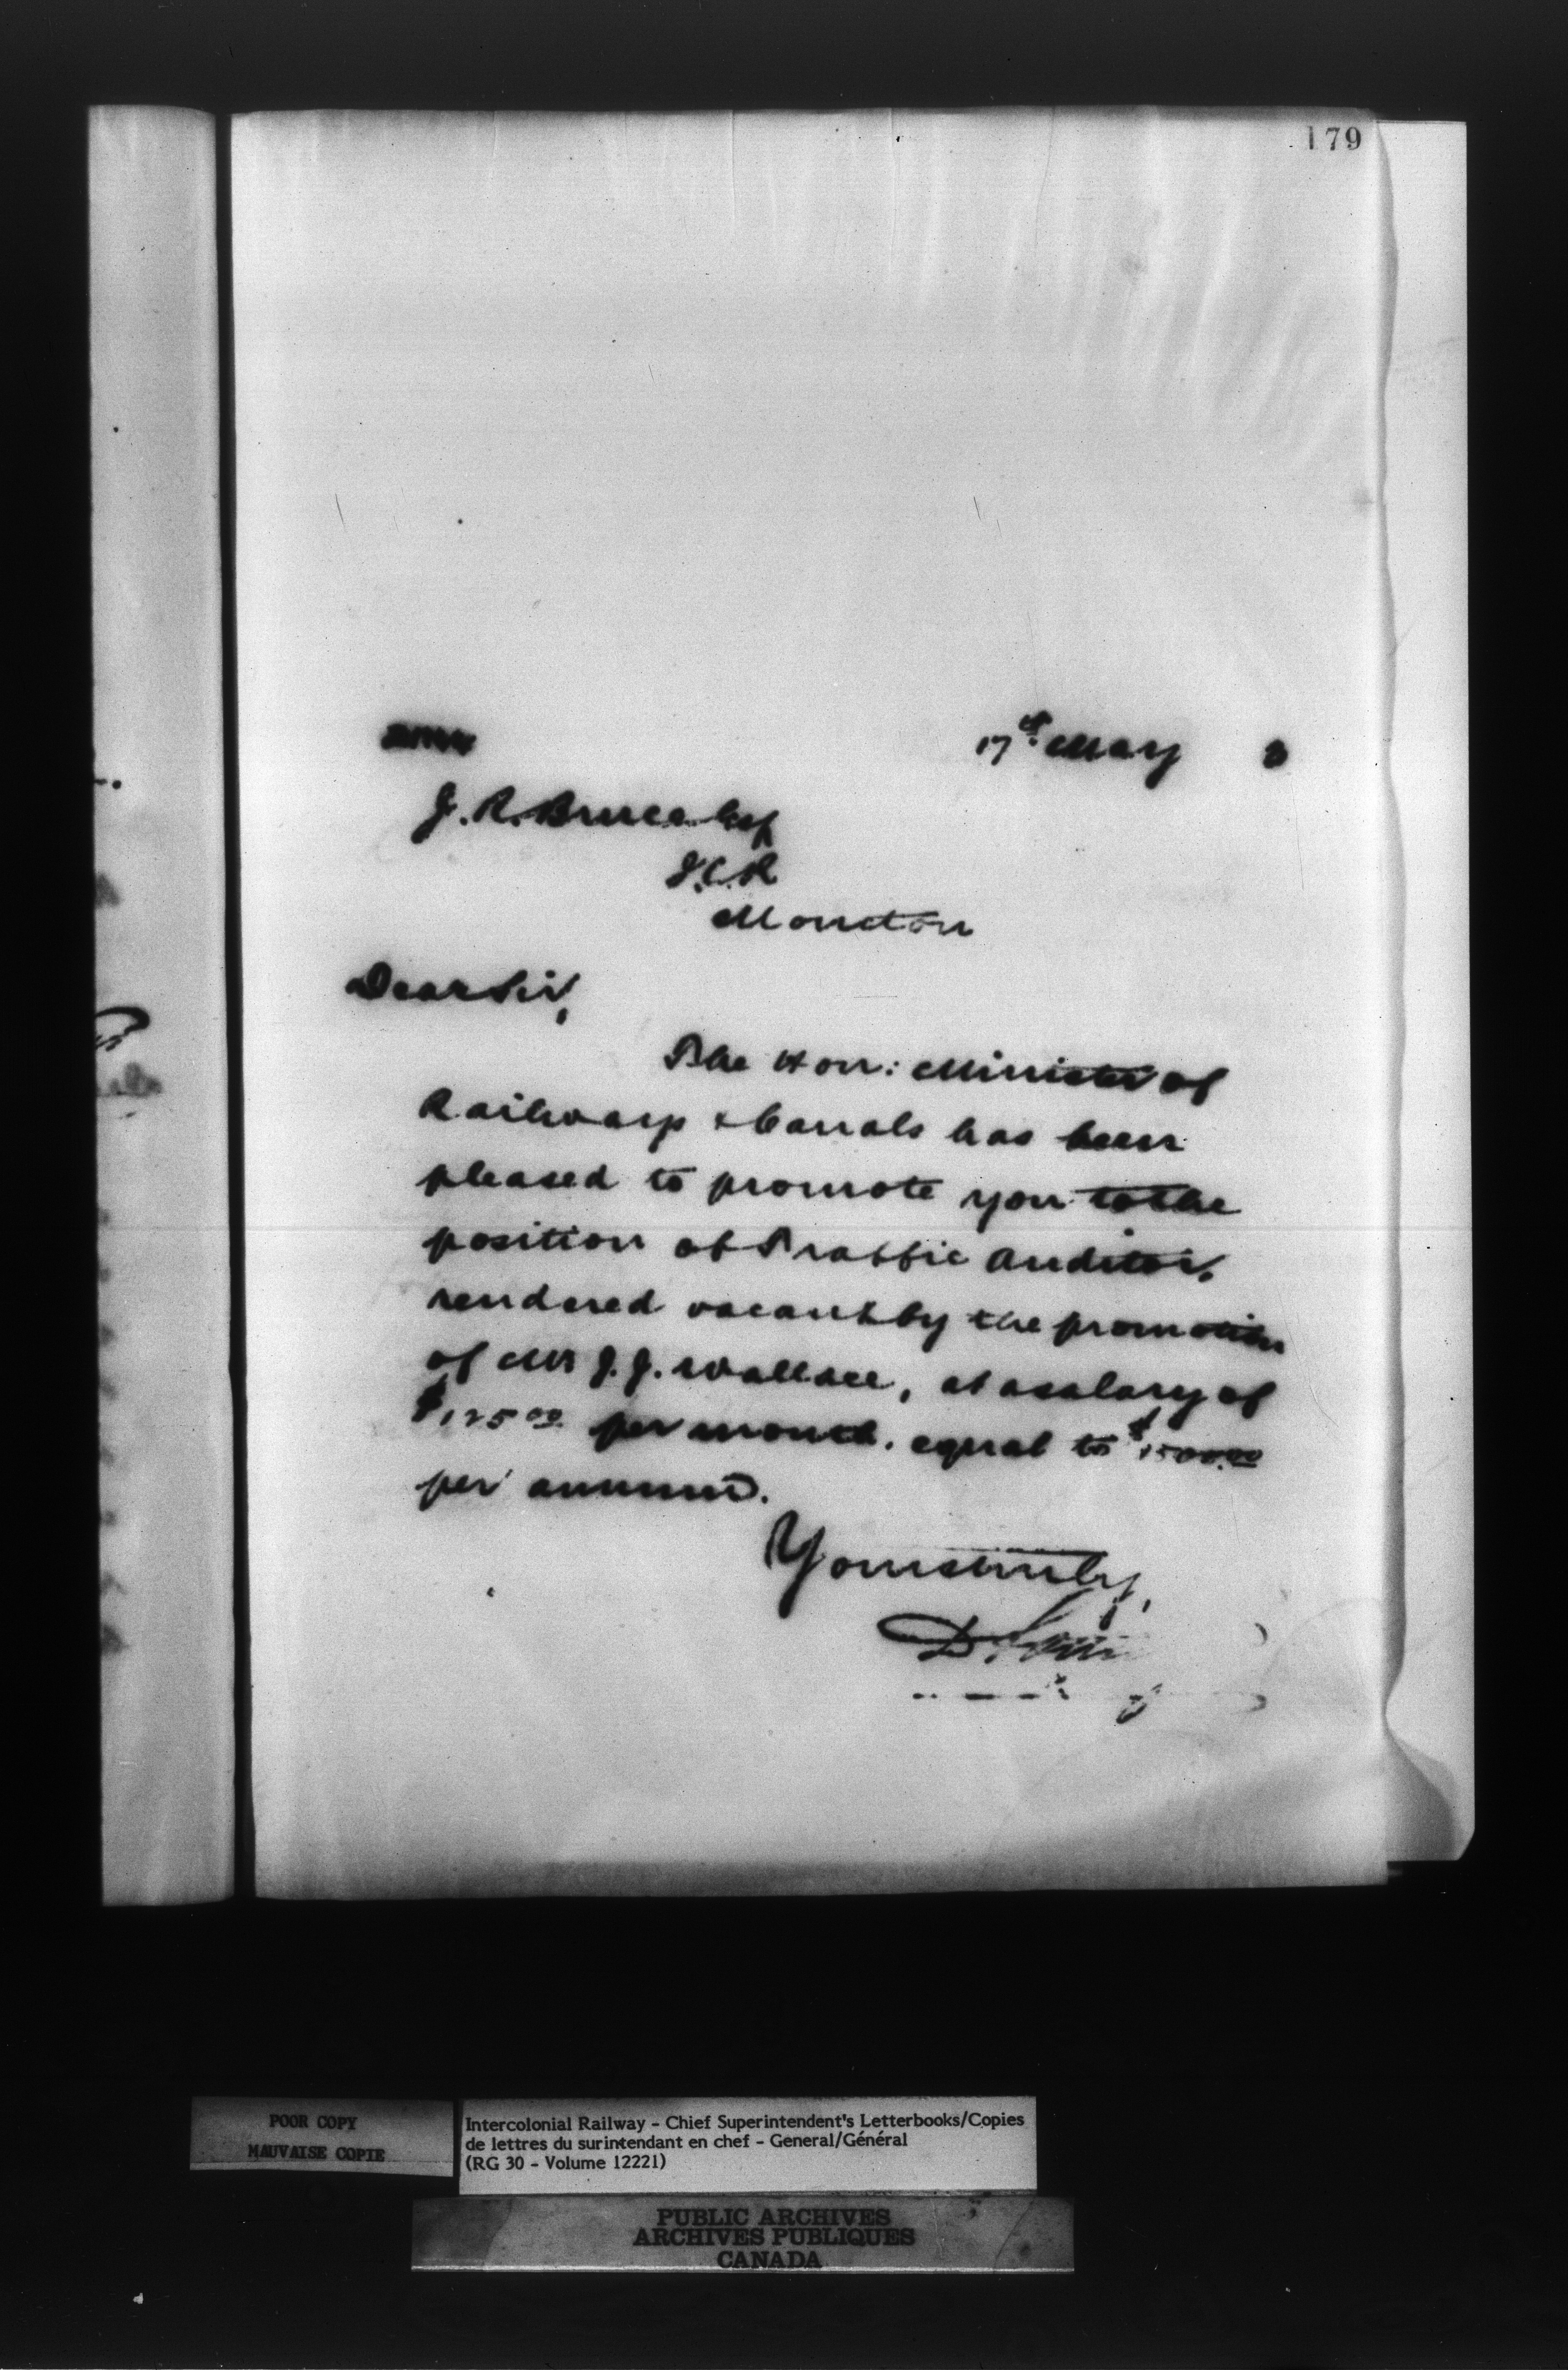 179
17th May 3
J. R. Bruce Esq
I.C.R
Moncton
Dear Sir,
The Hon: Minister of
Railways & Canals has been
pleased to promote you to the
position of Traffic Auditor,
rendered vacant by the promotion
of Mr J. J. Wallace, at a salary of
$125 00 per month, equal to $1500.00
per annum.
Yours truly,
D.
POOR COPY
MAUVAISE COPIE
Intercolonial Railway - Chief Superintendent's Letterbooks/Copies
de lettres du surintendant en chef - General/Général
(RG 30 - Volume 12221)
PUBLIC ARCHIVES
ARCHIVES PUBLIQUES
CANADA